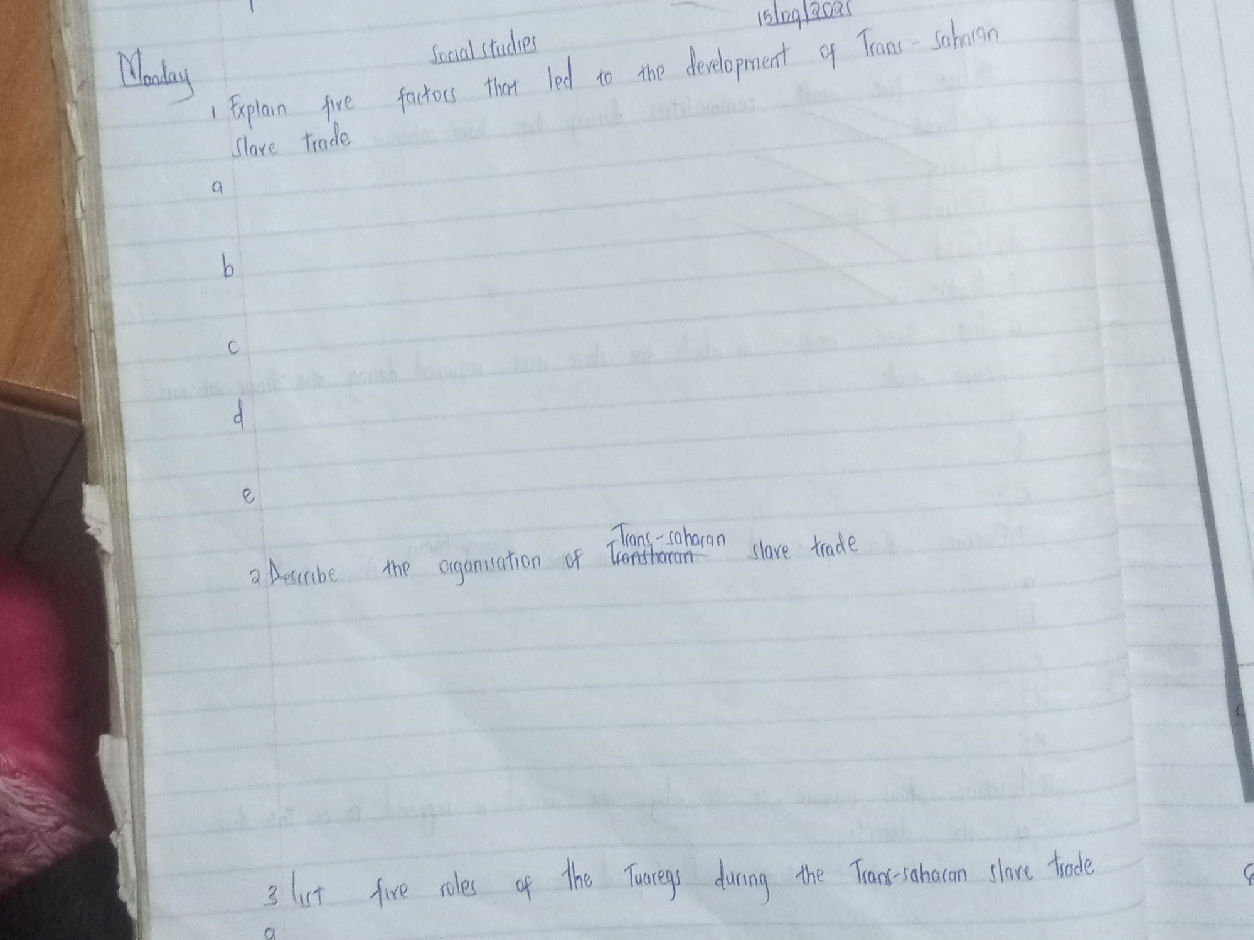 15/09/2025
Monday Social studies
1 Explain five factors that led to the development of Trans-saharan
slave trade
a
b
c
d
e
Trans-saharan
2 Describe the organisation of Transharan slave trade
3 list five roles of the Tuaregs during the Trans-saharan slave trade
a